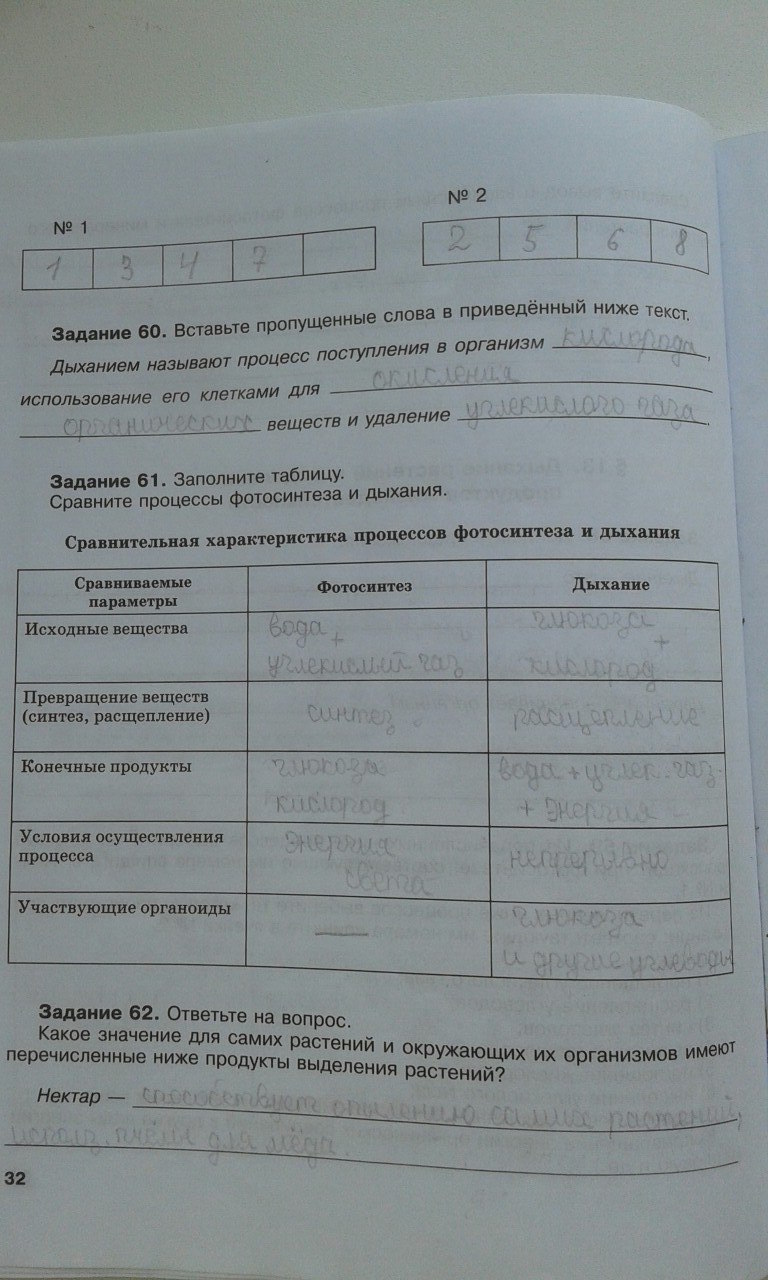 № 1
№ 2
1 3 4 7
2 5 6 8
Задание 60. Вставьте пропущенные слова в приведённый ниже текст.
Дыханием называют процесс поступления в организм кислорода,
использование его клетками для окисления
органических веществ и удаление углекислого газа.
Задание 61. Заполните таблицу.
Сравните процессы фотосинтеза и дыхания.
Сравнительная характеристика процессов фотосинтеза и дыхания
Сравниваемые
параметры
Фотосинтез
Дыхание
Исходные вещества
вода +
углекислый газ
глюкоза
+
кислород
Превращение веществ
(синтез, расщепление)
синтез
расщепление
Конечные продукты
глюкоза
кислород
вода + углек. газ
+ энергия
Условия осуществления
процесса
энергия
света
непрерывно
Участвующие органоиды
—
глюкоза
и другие углеводы
Задание 62. Ответьте на вопрос.
Какое значение для самих растений и окружающих их организмов имеют
перечисленные ниже продукты выделения растений?
Нектар — способствует опылению самих растений,
использ. пчёлы для мёда.
32